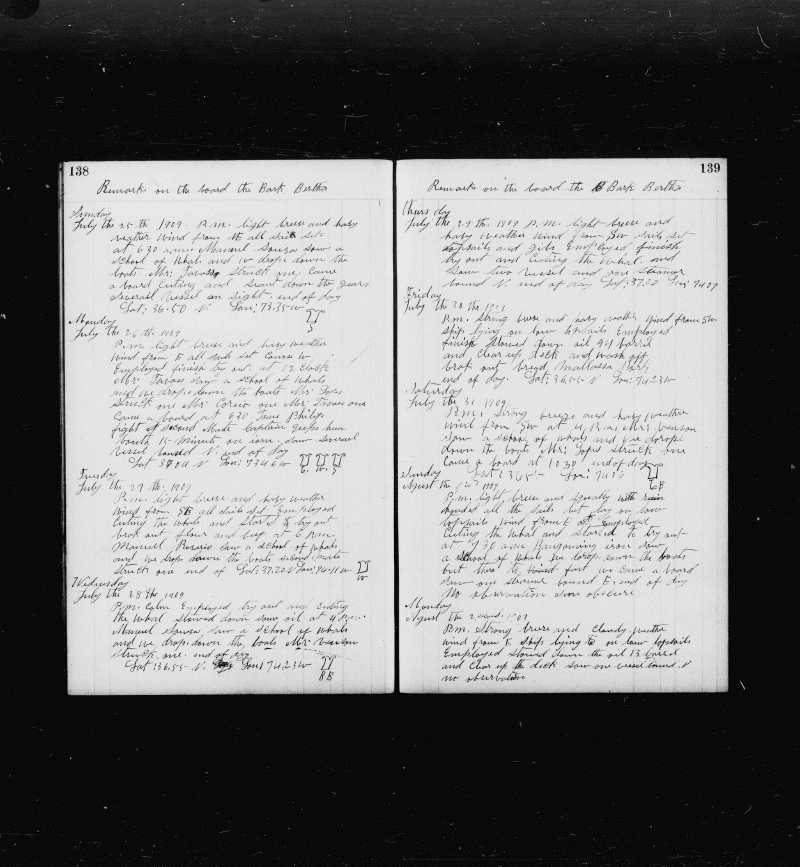 138
Remarks on the board the Bark Bertha
Sunday
July the 25 th 1909. P.m. light breese and hasy
weather wind from NE all sails set.
at 6 30 a.m. Manuel Souza saw a
school of Whals and we drop down the
boats Mr: Tavares struck one. Came
a board Cuting and send down the gears
several vessel in sight. end of day
Lat: 36.50 N. Lon: 73.35 W
Monday
July the 26 th 1909
P.m. light breese and hasy weather
Wind from E all sails set Course W
Employed finish try out. at 12 Clock
Mr: Tavares saw a school of Whals
and we drop down the boats Mr:
struck one Mr: Correia one Mr: Tavares one
Came a board at 6 30
fight second Mate Captain
15 minute in iron. saw several
vessel bound N. end of day
Lat 37.01 N Lon: 73.46 W
Tuesday
July the 27 th. 1909
P.m. light breese and hasy weather
Wind from SE all sails set Employed
Cuting the Whals and started to try out
brok out flour and at 6 P.m.
Manuel Rosario saw a school of Whals
and we drop down the boats second mate
struck one end of Lat: 37.20 N Lon: 74.11 W
Wednesday
July the 28 th 1909
P.m. Calm Employed try out and Cuting
the Whal stowed down some oil. at 4 P.m.
Manuel Souza saw a school of Whals
and we drop down the boats Mr:
struck one. end of day
Lat: 36.55 N. Lon: 74.23 W
139
Remarks on the board the Bark Bertha
Thursday
July the 29 th. 1909 P.m. light breese and
hasy weather wind from SW sails set
topsails and gibs Employed finish
try out and Cuting the Whal. and
saw two vessel and one steamer
bound N. end of day Lat: 37.00 Lon: 74.09
Friday
July the 30 th 1909
P.m. Strong breese and hasy weather Wind from SW
Ship lying on low topsails Employed
finish stowed down oil 94 barril
and clear up deck and wash off.
brok out bread, Mallassa Pork
end of day. Lat: 36.55 Lon: 74.23 W
Saturday
July the 31 1909.
P.m. Strong breeze and hasy weather
wind from SW at 4 P.m. Mr:
saw a school of whals and we drope
down the boats Mr: struck one
Came a board at 10 30 end of day
Lat: 36.5 Lon: 74.26
Sunday
August the 1 st 1909
P.m. light breese and squally with rain
all the sails but lay on low
topsails wind from E Employed
Cuting the Whal and started to try out
at 9 30 a.m. iron saw
a school of Whals we drop down the boats
but there to fort we came a board
saw one steamer bound E end of day
No observation sun obscure
Monday
August the 2 cund. 1909
P.m. Strong breese and Cloudy weather
wind from E Ship lying to on low topsails
Employed stowed down the oil 13 barel
and clear up the deck saw one vessel bound N
no observation